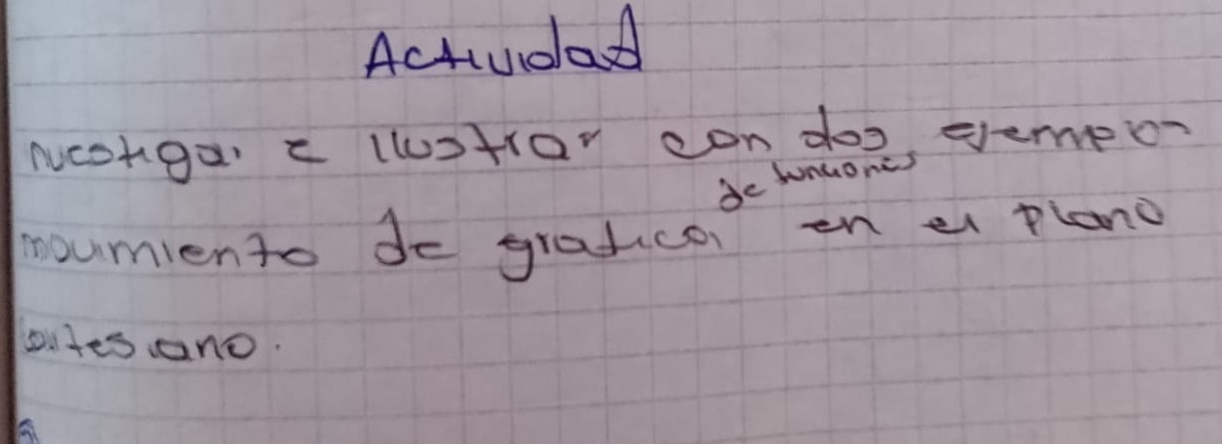 Actividad
nvestigar e ilustrar con dos ejemplos
de funciones
movimiento de grafica, en el plano
cartesiano.